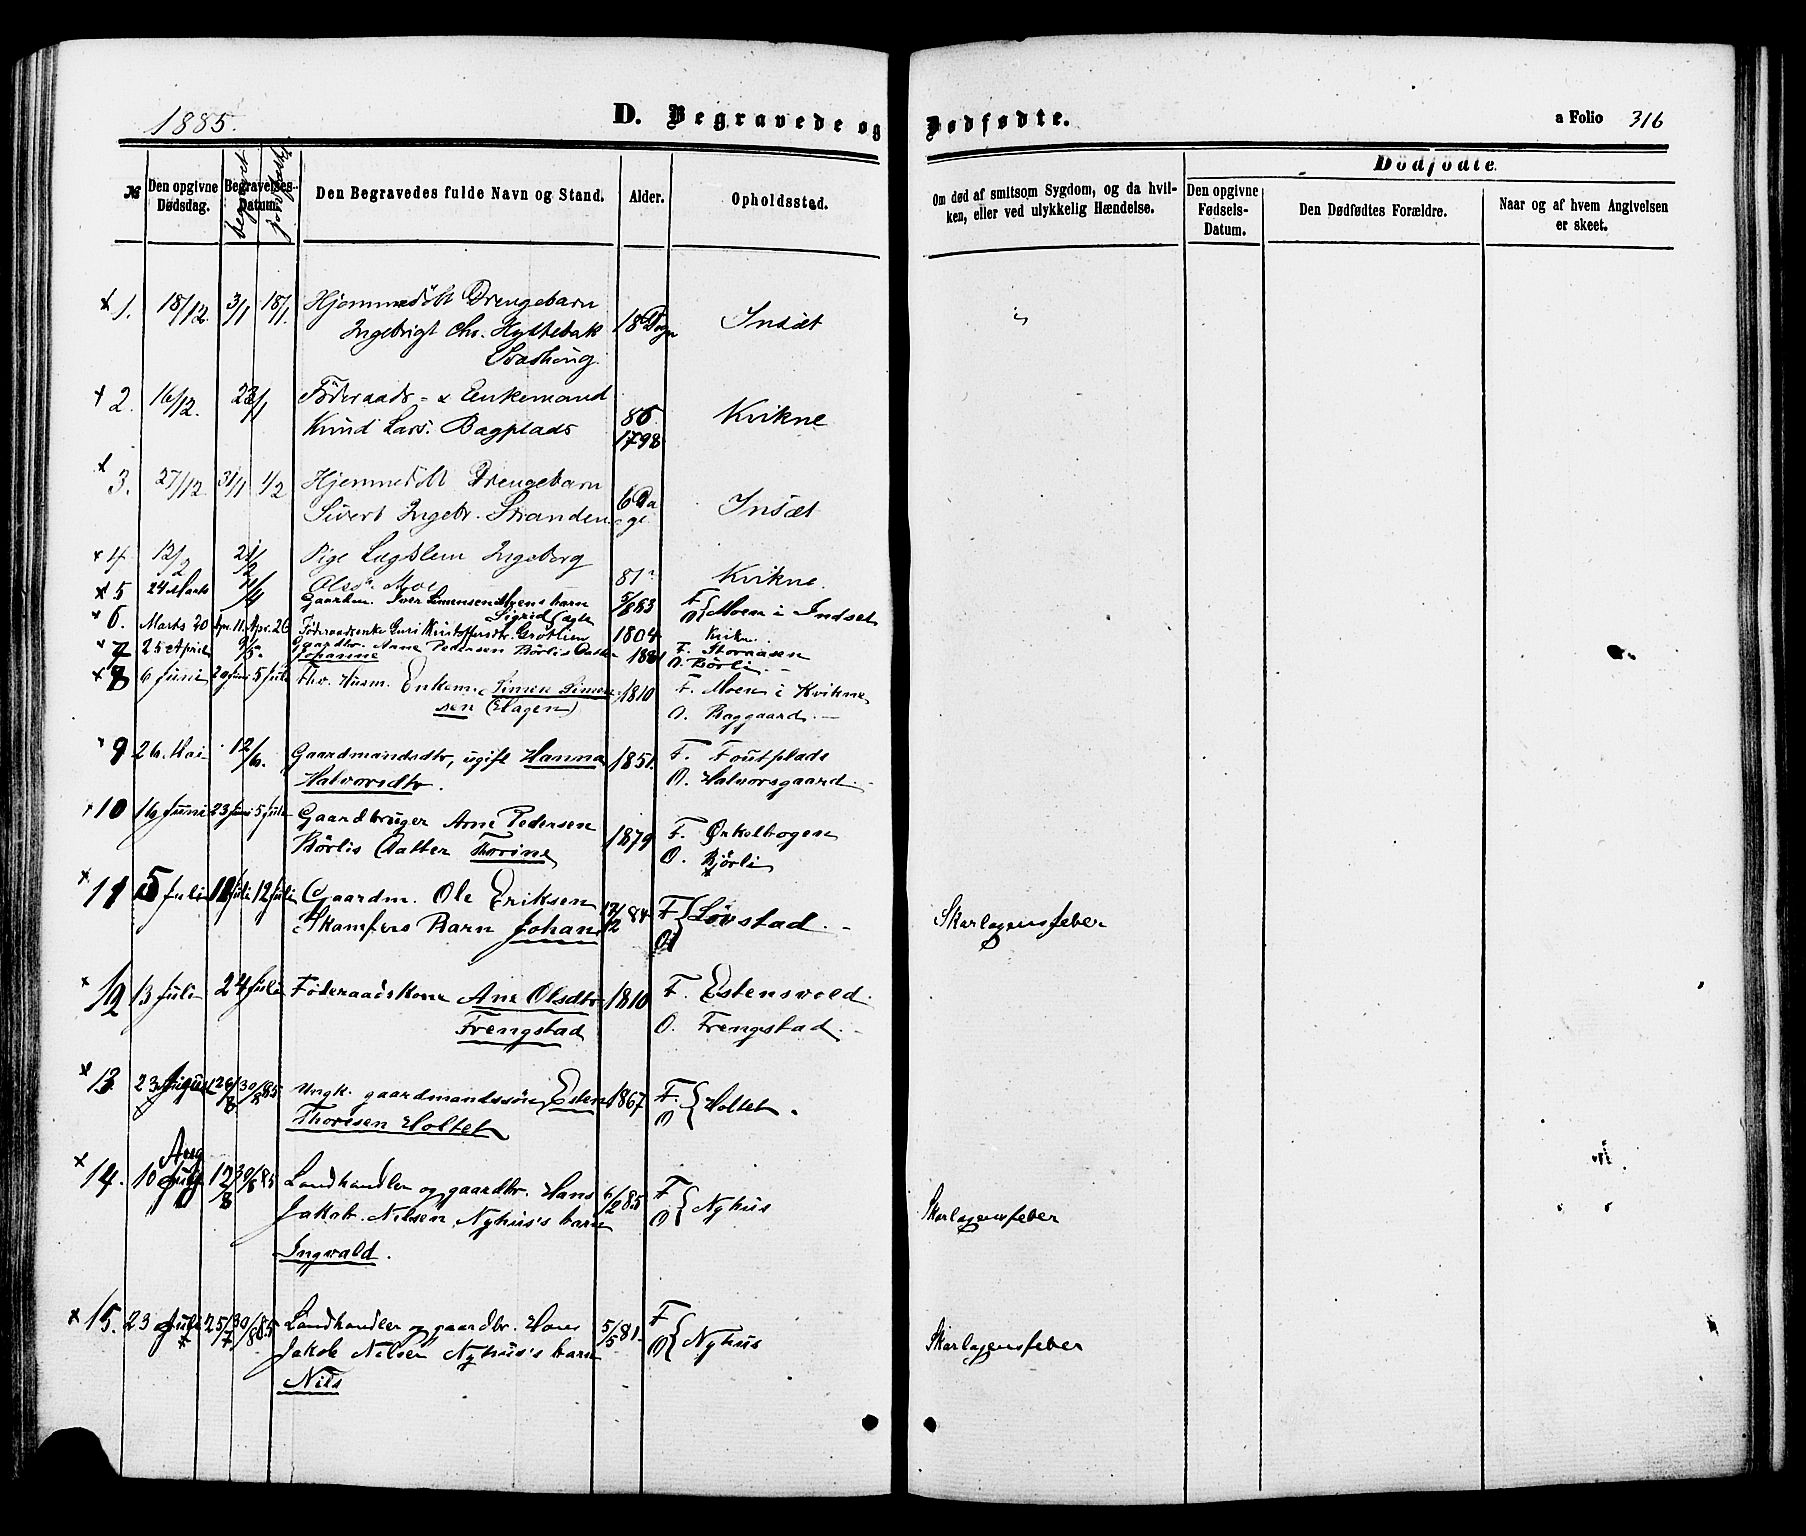 1885.
D. Begravede og Dødfødte.
a Folio 316
№
Den opgivne Dødsdag.
Begravelses-Datum.
begravet
jordfæstet
Den Begravedes fulde Navn og Stand.
Alder.
Opholdssted.
Om død af smitsom Sygdom, og da hvil-
ken, eller ved ulykkelig Hændelse.
Dödfödte.
Den opgivne Fødsels-Datum.
Den Dødfødtes Forældre.
Naar og af hvem Angivelsen er skeet.
1. 18/12. 3/1 18/1. Hjemmedøbt Drengebarn 18 Døgn Insæt
Ingebrigt Chr. Hyttebak
2. 16/12. 23/1 Föderaads- & Enkemand 86 Kvikne
Knud Lars. Bagplads 1798
3. 27/12 31/1 1/2 Hjemmedöbt Drengebarn 6 Da Insæt
Sivert Ingebr. Stranden ge
4 12/2 21/2 Pige Lægdslem Ingeborg 81 Kvikne.
Olsd. Moe
5 24 Marts 11/4 Gaardm. Iver Simensen Moens barn 5/883 F. O. { Moen i Indset
Sigrid
6. Marts 20 Apr. 11. Apr. 26 Föderaadsenke Guri Kristoffersdtr. Grötlien 1804 Kvikn.
7 25 April 9/5. Gaardbr. Arne Pedersen Börlis Datter 1881 F. Storaasen
Johanne O. Börli
8 6 Juni 20 Juni 5 Juli Fhv. Husm. Enkem. Simen Simen- 1810 F. Moen i Kvikne
sen (Hagen) O. Baggaard
9 26. Mai 12/6. Gaardmandsdtr, ugift Hanna 1851. F. Foutplads
Halvorsdtr. O. Halvorsgaard
10 16 Juni 23 Juni 5 Juli Gaardbruger Arne Pedersen 1879 F. Ørkelbogen
Börlis Datter Thorine O. Bjørli
11 5 Juli 11 Juli 12 Juli Gaardm. Ole Eriksen 17/2 84 F. O. { Lövstad. Skarlagensfeber
Skamfers Barn Johan
12 13 Juli 24 Juli Föderaadskone Ane Olsdtr 1810 F. Estensvold.
Frengstad O. Frengstad.
13. 23 August 26/8 30/8 85 Ungk. gaardmandssön Esten 1867 F. O. { Holtet.
Thoresen Holtet
14. 10 Aug 12/8 30/8 85 Landhandler og gaardbr. Hans 6/2 85 F O { Nyhus Skarlagensfeber
Jakob Nilsen Nyhus's barn
Ingvald.
15. 23 Juli 25/7 30/8 85 Landhandler og gaardbr. Hans 5/5 81. F O { Nyhus Skarlagensfeber
Jakob Nilsen Nyhus's barn
Nils